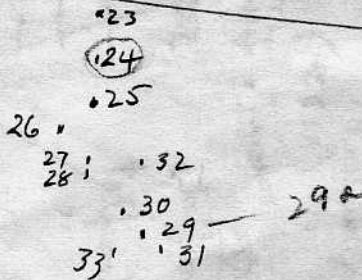 23
24
25
26
27 32
28
30
29 — 29a
33 31